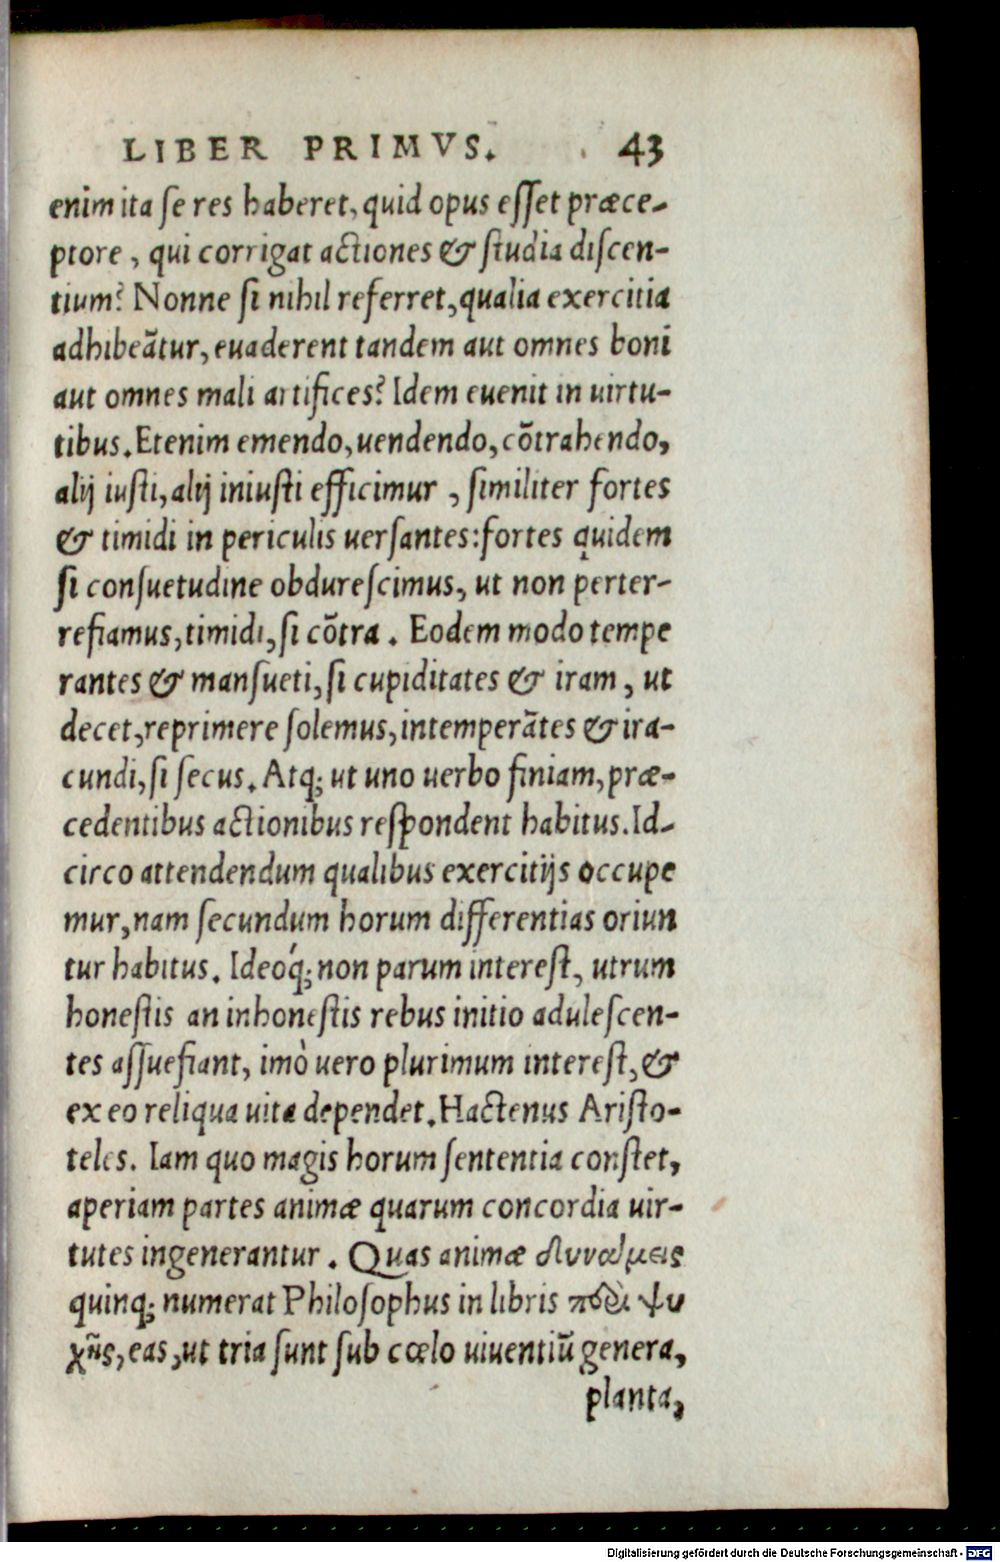 LIBER PRIMVS. 43
enim ita ſe res haberet, quid opus eſſet præce-
ptore, qui corrigat actiones & ſtudia diſcen-
tium? Nonne ſi nihil referret, qualia exercitia
adhibeātur, euaderent tandem aut omnes boni
aut omnes mali artifices? Idem euenit in uirtu-
tibus. Etenim emendo, uendendo, cōtrahendo,
alij iuſti, alij iniuſti efficimur, ſimiliter fortes
& timidi in periculis uerſantes: fortes quidem
ſi conſuetudine obdureſcimus, ut non perter-
refiamus, timidi, ſi cōtra. Eodem modo tempe
rantes & manſueti, ſi cupiditates & iram, ut
decet, reprimere ſolemus, intemperātes & ira-
cundi, ſi ſecus. Atq; ut uno uerbo finiam, præ-
cedentibus actionibus reſpondent habitus. Id-
circo attendendum qualibus exercitijs occupe
mur, nam ſecundum horum differentias oriun
tur habitus. Ideoq́; non parum intereſt, utrum
honeſtis an inhoneſtis rebus initio aduleſcen-
tes aſſuefiant, imò uero plurimum intereſt, &
ex eo reliqua uita dependet. Hactenus Ariſto-
teles. Iam quo magis horum ſententia conſtet,
aperiam partes animæ quarum concordia uir-
tutes ingenerantur. Quas animæ δυνάμεις
quinq; numerat Philoſophus in libris περὶ ψυ
χῆς, eas, ut tria ſunt ſub cœlo uiuentiū genera,
planta,
Digitalisierung gefördert durch die Deutsche Forschungsgemeinschaft - DFG